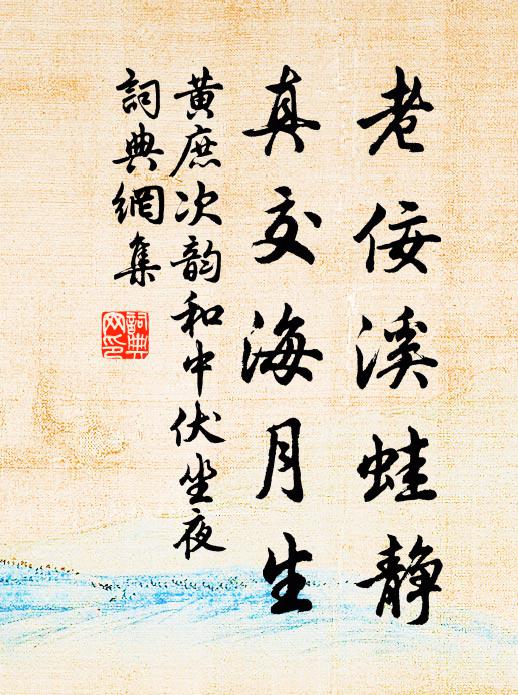 老佞溪蛙静
真交海月生
黄庶次韵和中伏坐夜
詞典網集
詞典網印